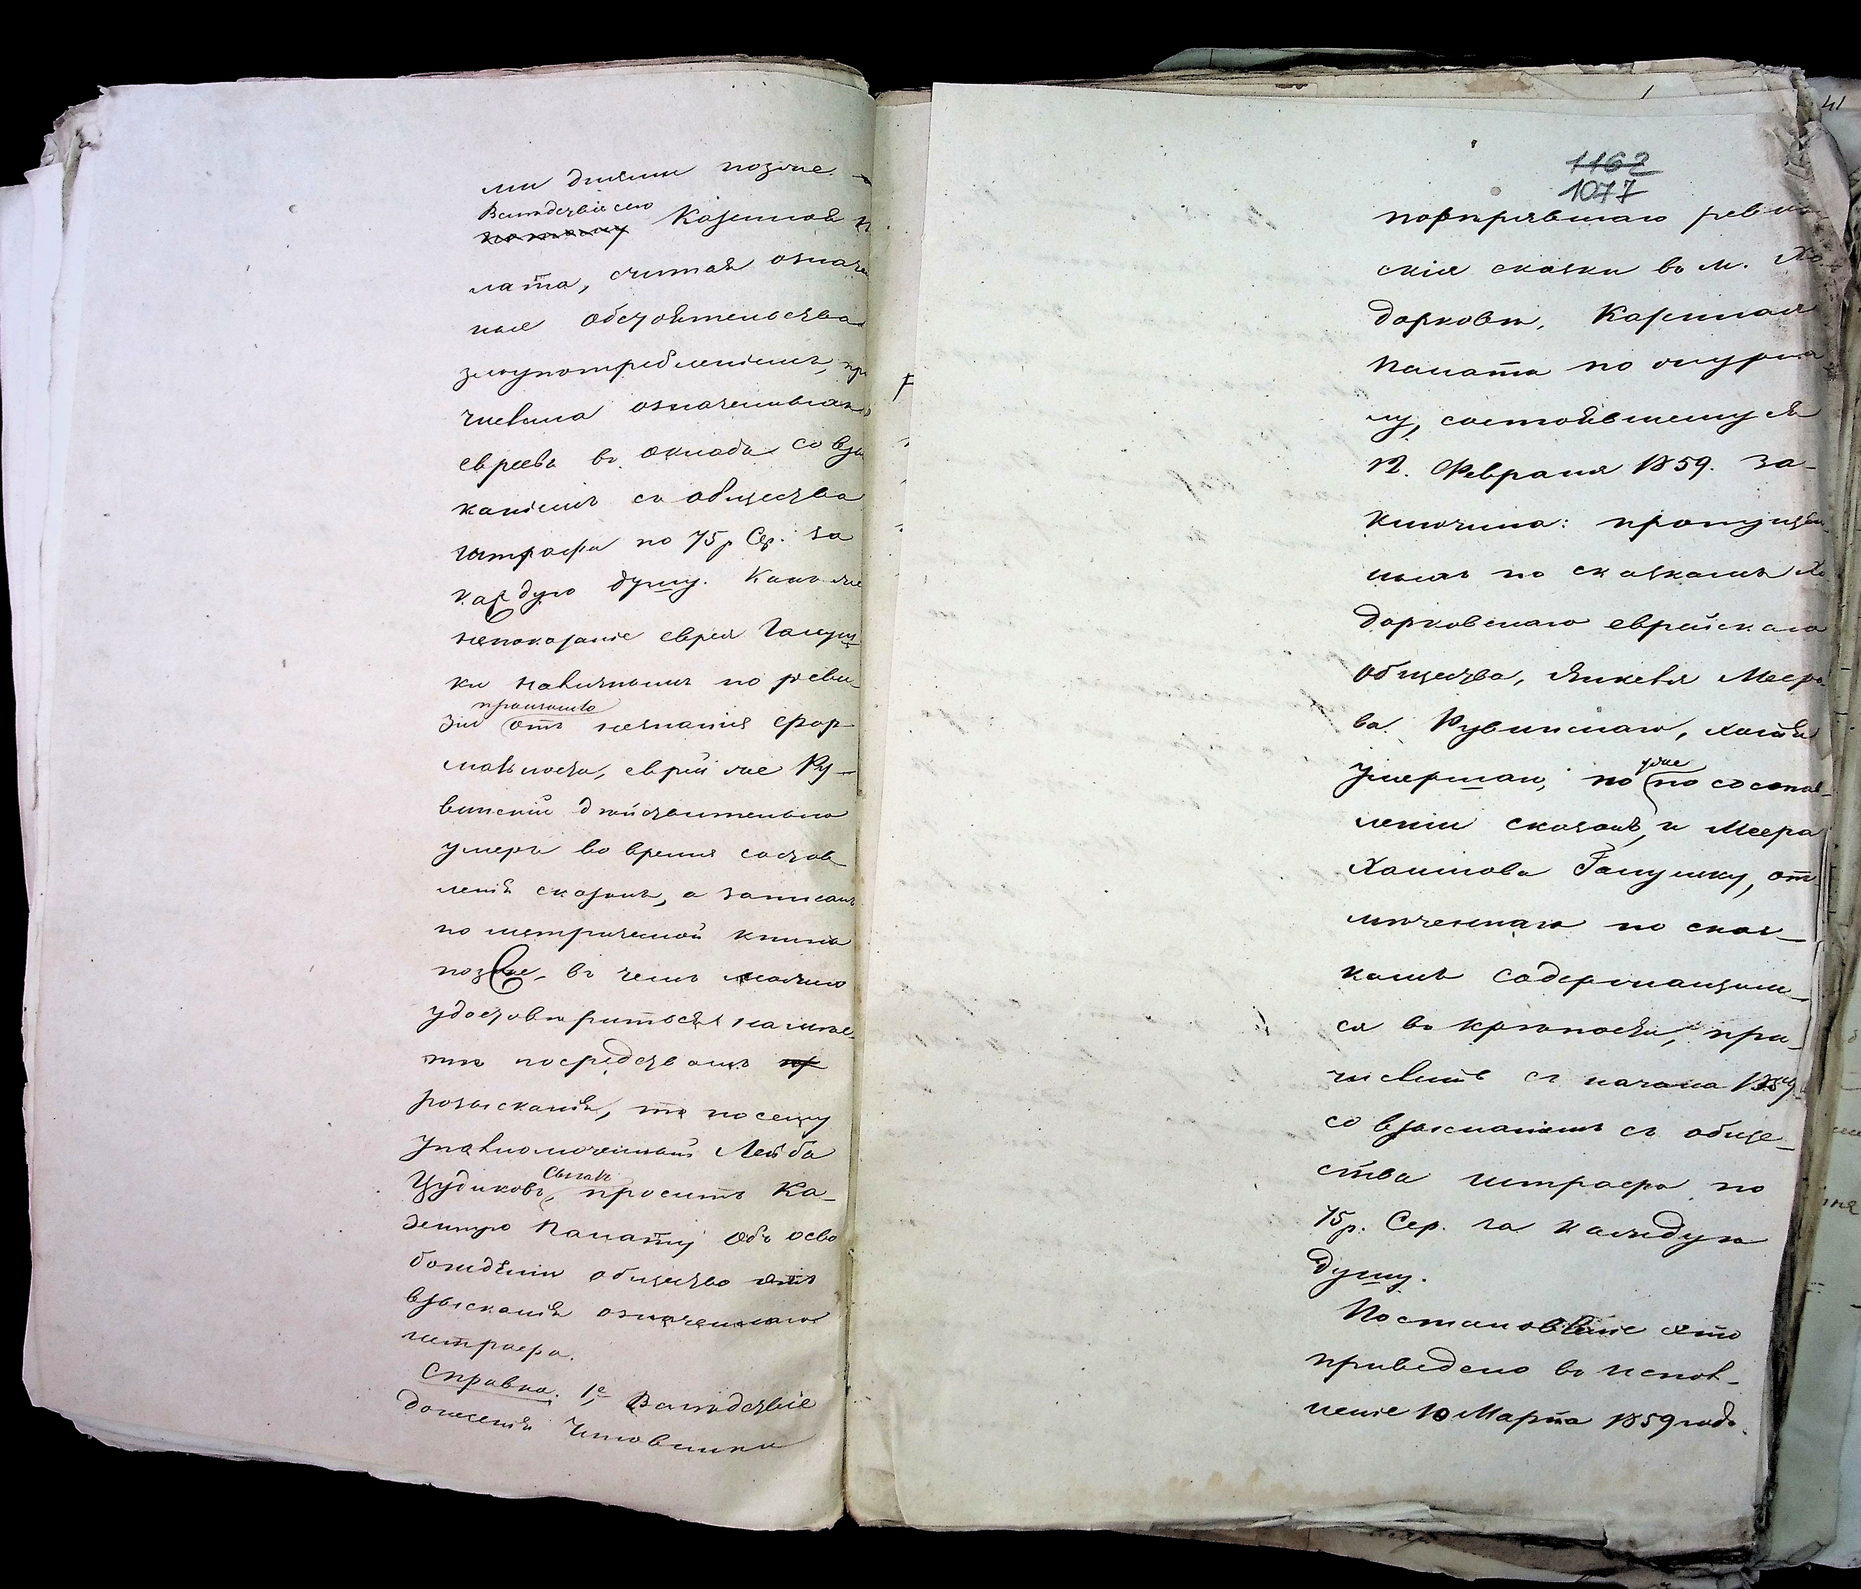 ми днями позже.
Вслѣдствіе сего
потому Казенная
лата, считая означе
ныя обстоятельства
злоупотребленіемъ, пр
числила означенныхъ
евреевъ въ окладъ со взы
каніемъ съ общества
штрафа по 75 р. Сер. за
каждую душу. Какъ же
непоказаніе еврея Галуш
ки наличнымъ по реви-
произошло
зіи отъ незнанія фор-
мальности, еврей же Ру-
винскій дѣйствительно
умеръ во время состав-
ленія сказокъ, а записанъ
по метрической книгѣ
позже, въ чемъ можно
удостовѣриться на мѣ-
стѣ посредствомъ
розысканія, то посему
уполномоченный Лейба
Цудиковъ просить Ка-
зенную Палату объ осво
божденіи общества отъ
взысканія означеннаго
штрафа.
Справка. 1е, Вслѣдствіе
донесенія Чиновника
1162
1077
повѣрявшаго ревиз
скія сказки въ м. Хо
дорковѣ, Казенная
Палата по журна
лу, состоявшемуся
12. Февраля 1859. за-
ключила: пропущен
ныхъ по сказкамъ Хо
дорковскаго еврейскаго
общества, Янкеля Мееро
ва Рувинскаго, хотя и
уже
умершаго, но по состав-
леніи сказокъ, и Меера
Хаимова Галушку, от
мѣченнаго по сказ-
камъ содержащим-
ся въ крѣпости, при-
числить съ начала 1859
со взысканіемъ съ обще-
ства штрафа по
75 р. Сер. за каждую
душу.
Постановленіе это
приведено въ испол-
неніе 10 Марта 1859 года.
41